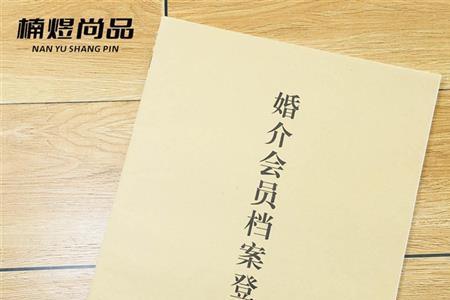 楠煜尚品
NAN YU SHANG PIN
婚介会员档案登